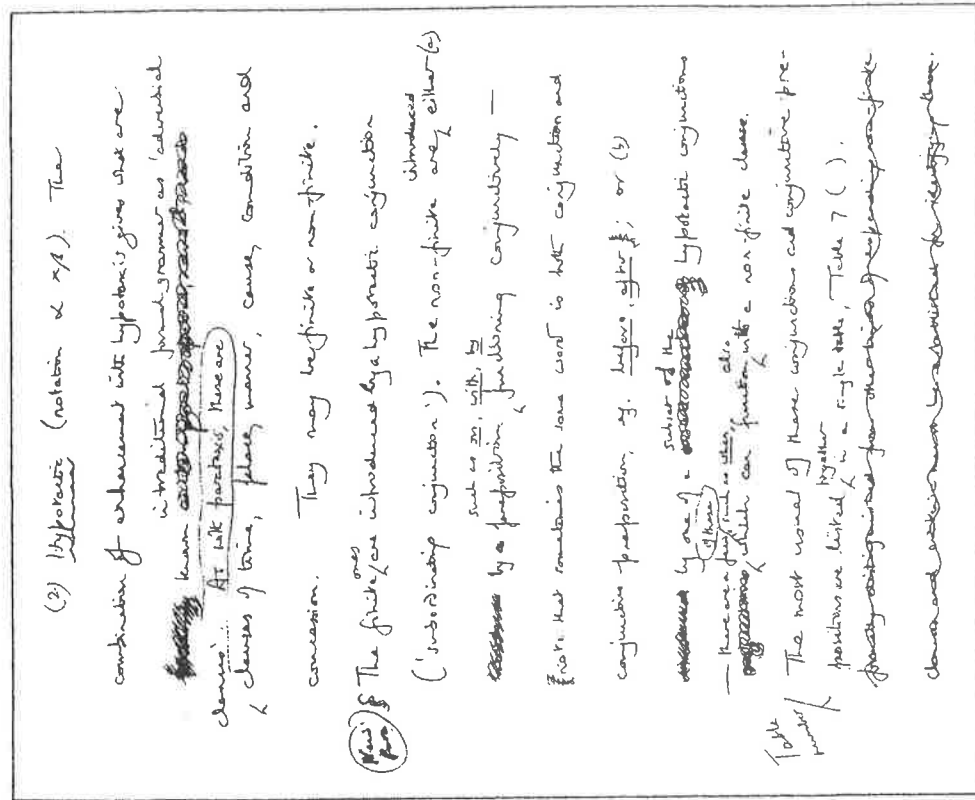 (2) Hypotactic (notation α xβ). The
combination of enhancement with hypotaxis gives what are
known in traditional formal grammar as 'adverbial
clauses'. As with parataxis, there are
clauses of time, place, manner, cause, condition and
concession. They may be finite or non-finite.
New Para § The finite ones are introduced by a hypotactic conjunction
('subordinating conjunction'). The non-finite are introduced either (a)
by a preposition such as on, with, by functioning conjunctively —
note that sometimes the same word is both conjunction and
conjunctive preposition, eg. before, after; or (b)
by one of a subset of the hypotactic conjunctions
— there are a few of these, such as when, which can also function with a non-finite clause.
Table number / The most usual of these conjunctions and conjunctive pre-
positions are listed together in a single table, Table 7 ( ).